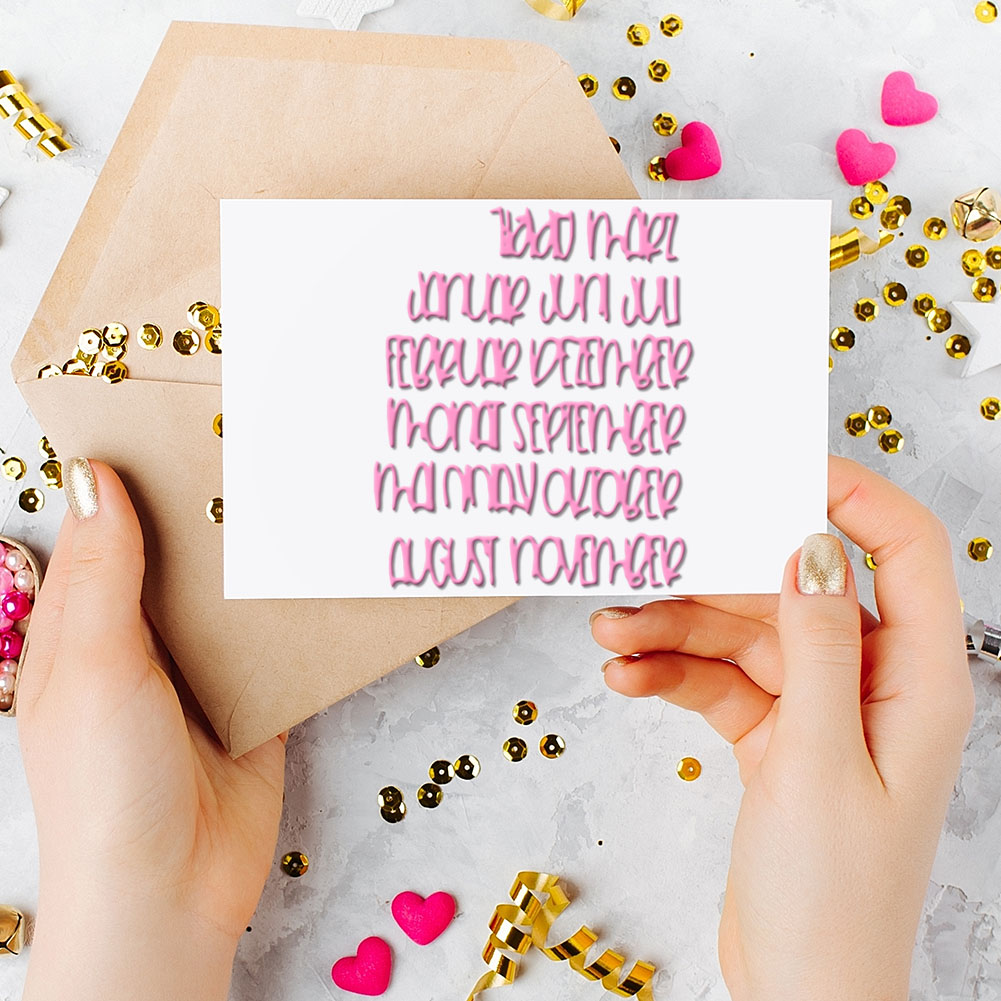 MÄRZ
JANUAR JUNI JULI
FEBRUAR DEZEMBER
MONAT SEPTEMBER
MAI OKTOBER
AUGUST NOVEMBER